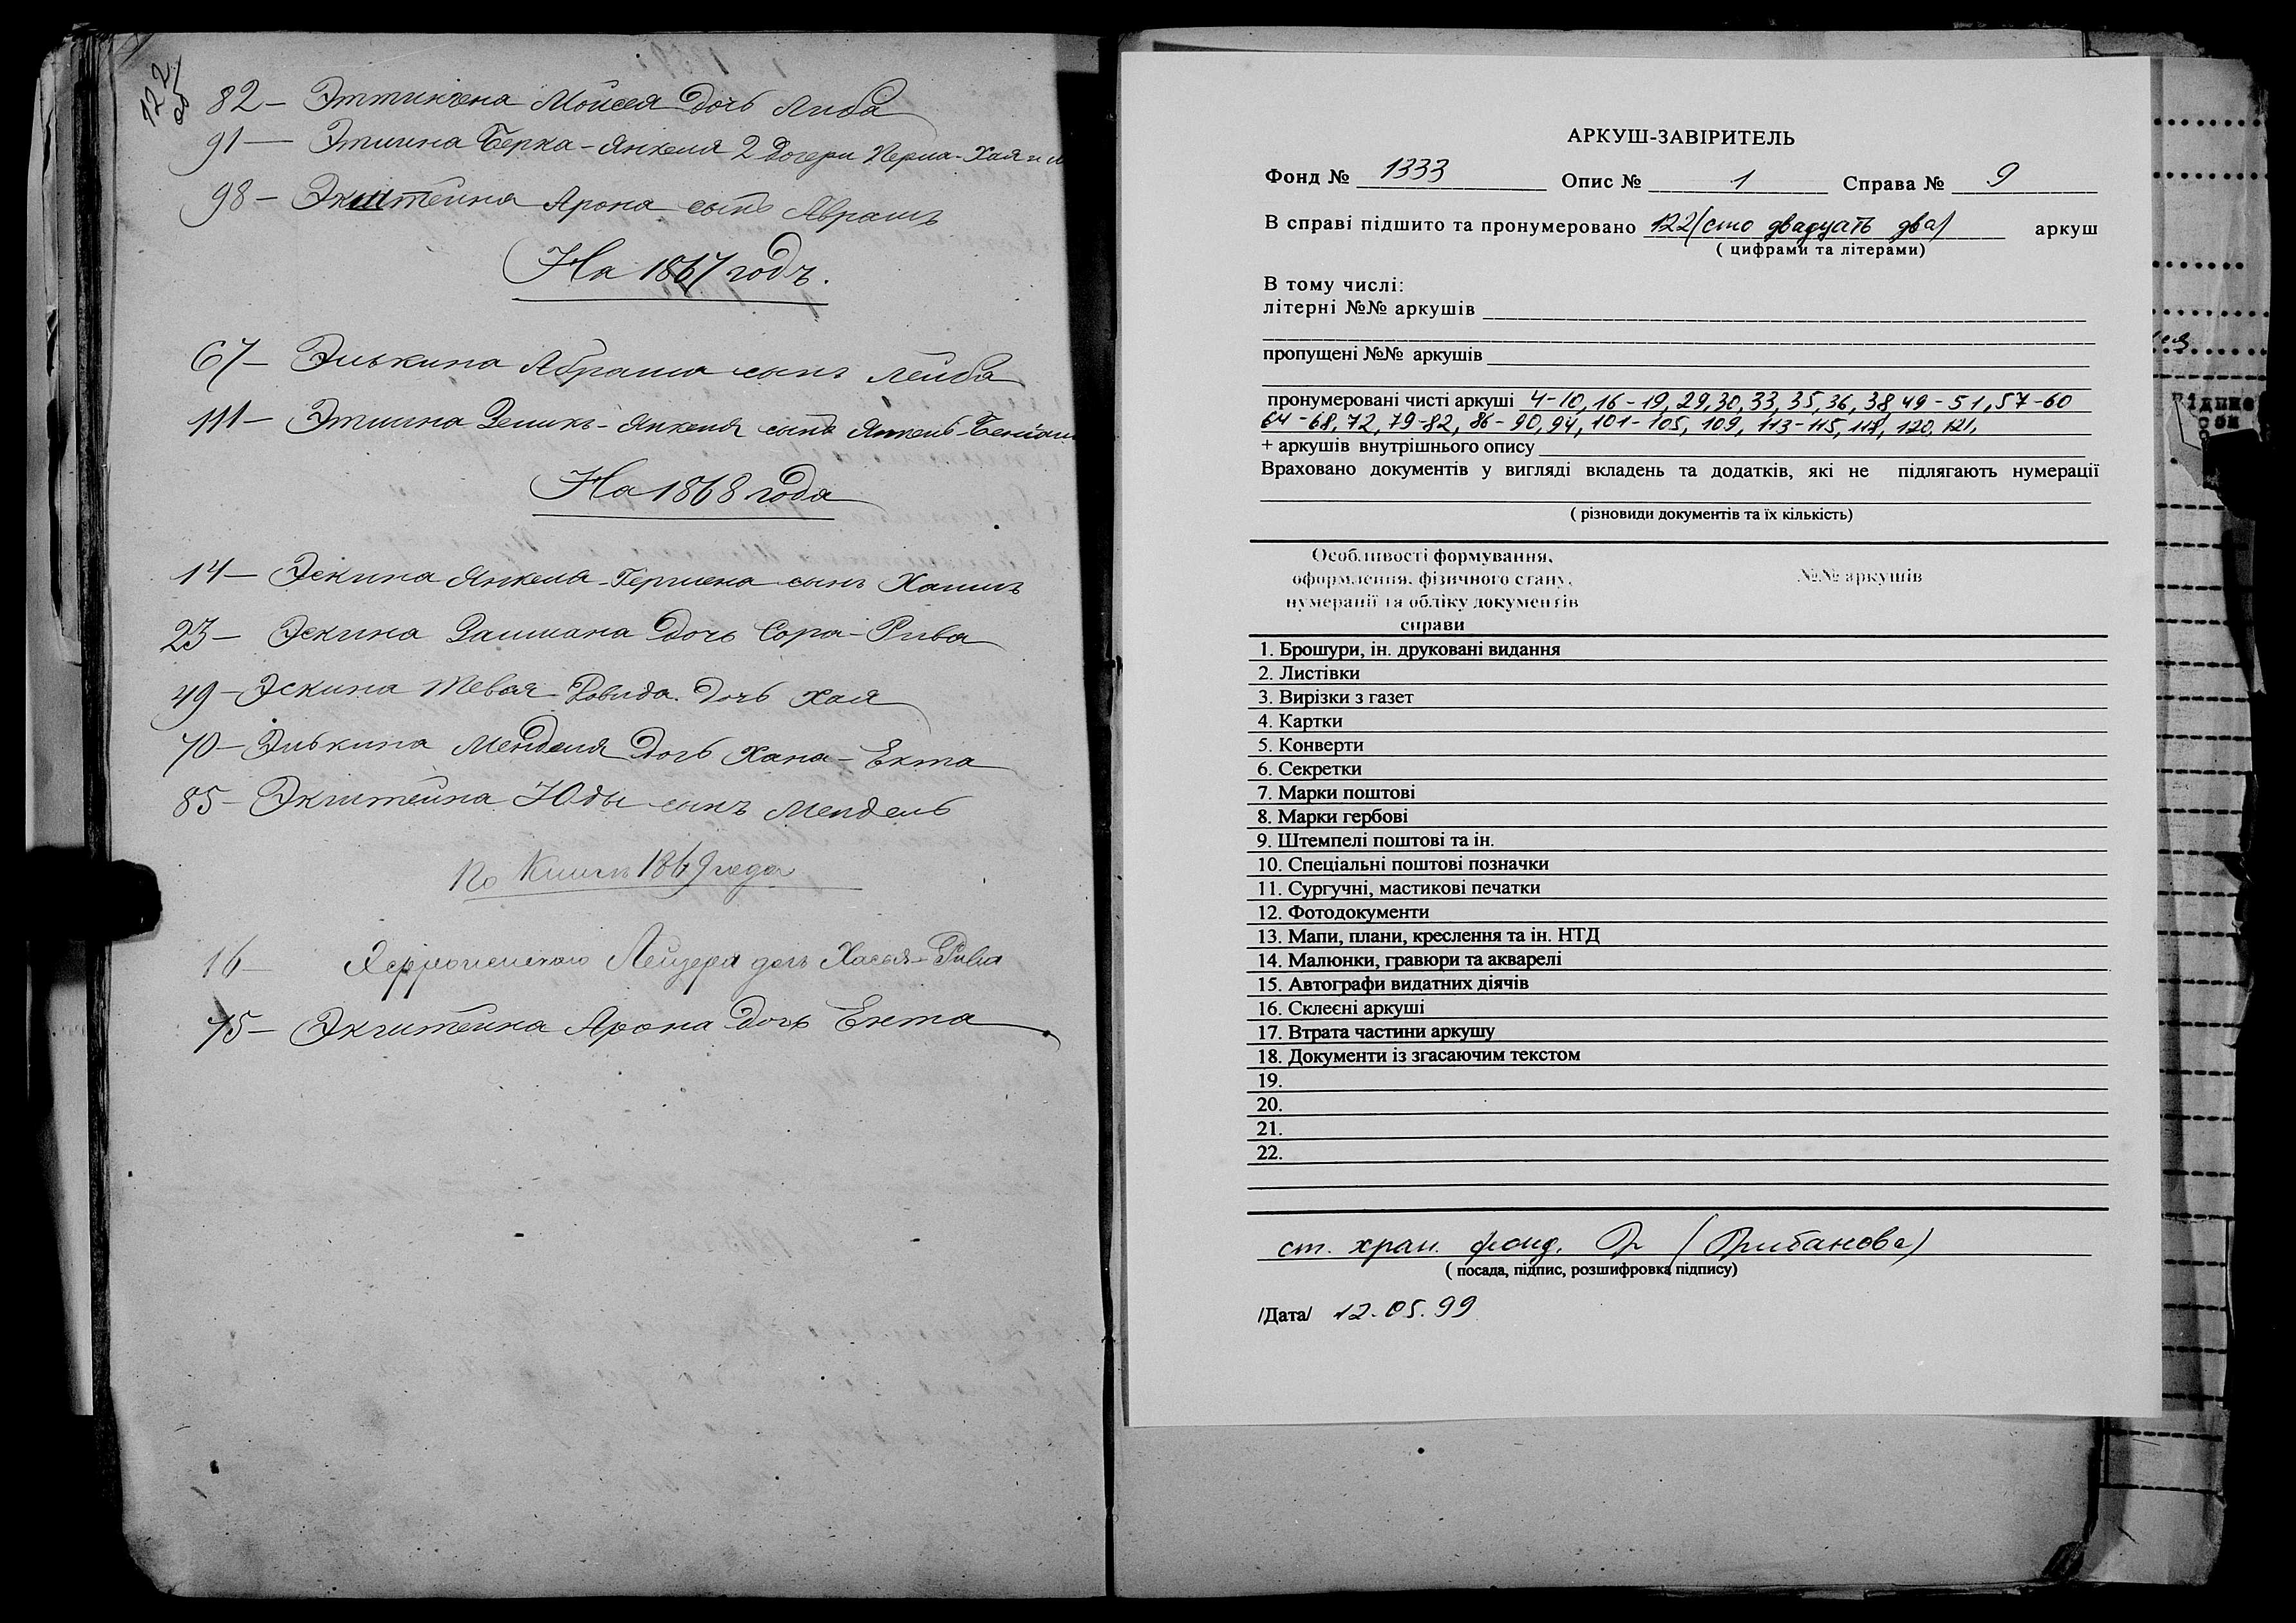 122
об
82 – Эттингена Моисея дочь Либа
91 – Этина Берка-Янкеля 2 дочери Перла-Хая и
98 – Экштейна Арона сынъ Абрамъ
На 1867 годъ.
67 – Элькина Абрама сынъ Лейба
111 – Этина Зелика-Янкеля сынъ
На 1868 года
14 – Эскина Янкеля-Гершена сынъ Хаимъ
23 – Эскина Залмана дочь Сора-Рива
49 – Эскина Тевья Довида дочь Хая
70 – Элькина Менделя дочь Хана-Екта
85 – Экштейна Юды сынъ Мендель
По книгѣ 1869 года
16 – Лейзера дочь Хася-Рива
75 – Экштейна Арона дочь Екта
АРКУШ-ЗАВІРИТЕЛЬ
Фонд № 1333 Опис № 1 Справа № 9
В справі підшито та пронумеровано 122 (сто двадцать два) аркуш
( цифрами та літерами)
В тому числі:
літерні №№ аркушів
пропущені №№ аркушів
пронумеровані чисті аркуші 4-10, 16-19, 29, 30, 33, 35, 36, 38, 49-51, 57-60
64-68, 72, 79-82, 86-90, 94, 101-105, 109, 113-115, 118, 120, 121,
+ аркушів внутрішнього опису
Враховано документів у вигляді вкладень та додатків, які не підлягають нумерації
( різновиди документів та їх кількість)
Особливості формування, №№ аркушів
оформлення, фізичного стану,
нумерації та обліку документів
справи
1. Брошури, ін. друковані видання
2. Листівки
3. Вирізки з газет
4. Картки
5. Конверти
6. Секретки
7. Марки поштові
8. Марки гербові
9. Штемпелі поштові та ін.
10. Спеціальні поштові позначки
11. Сургучні, мастикові печатки
12. Фотодокументи
13. Мапи, плани, креслення та ін. НТД
14. Малюнки, гравюри та акварелі
15. Автографи видатних діячів
16. Склеєні аркуші
17. Втрата частини аркушу
18. Документи із згасаючим текстом
19.
20.
21.
22.
ст. хран. фонд. (Рибанова)
( посада, підпис, розшифровка підпису)
/Дата/ 12.05.99